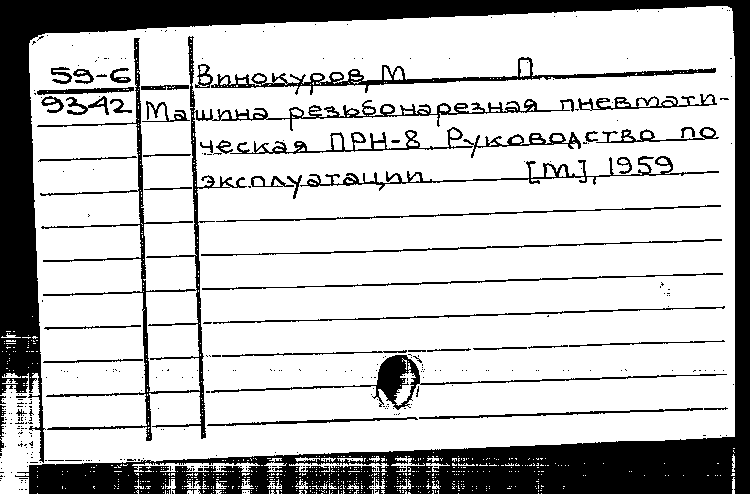 59-6 Винокуров, М П
9342 Машина резьбонарезная пневмати-
ческая ПРН-8. Руководство по
эксплуатации. [М], 1959.